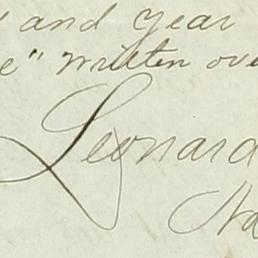 and year
e" written ove
Leonard